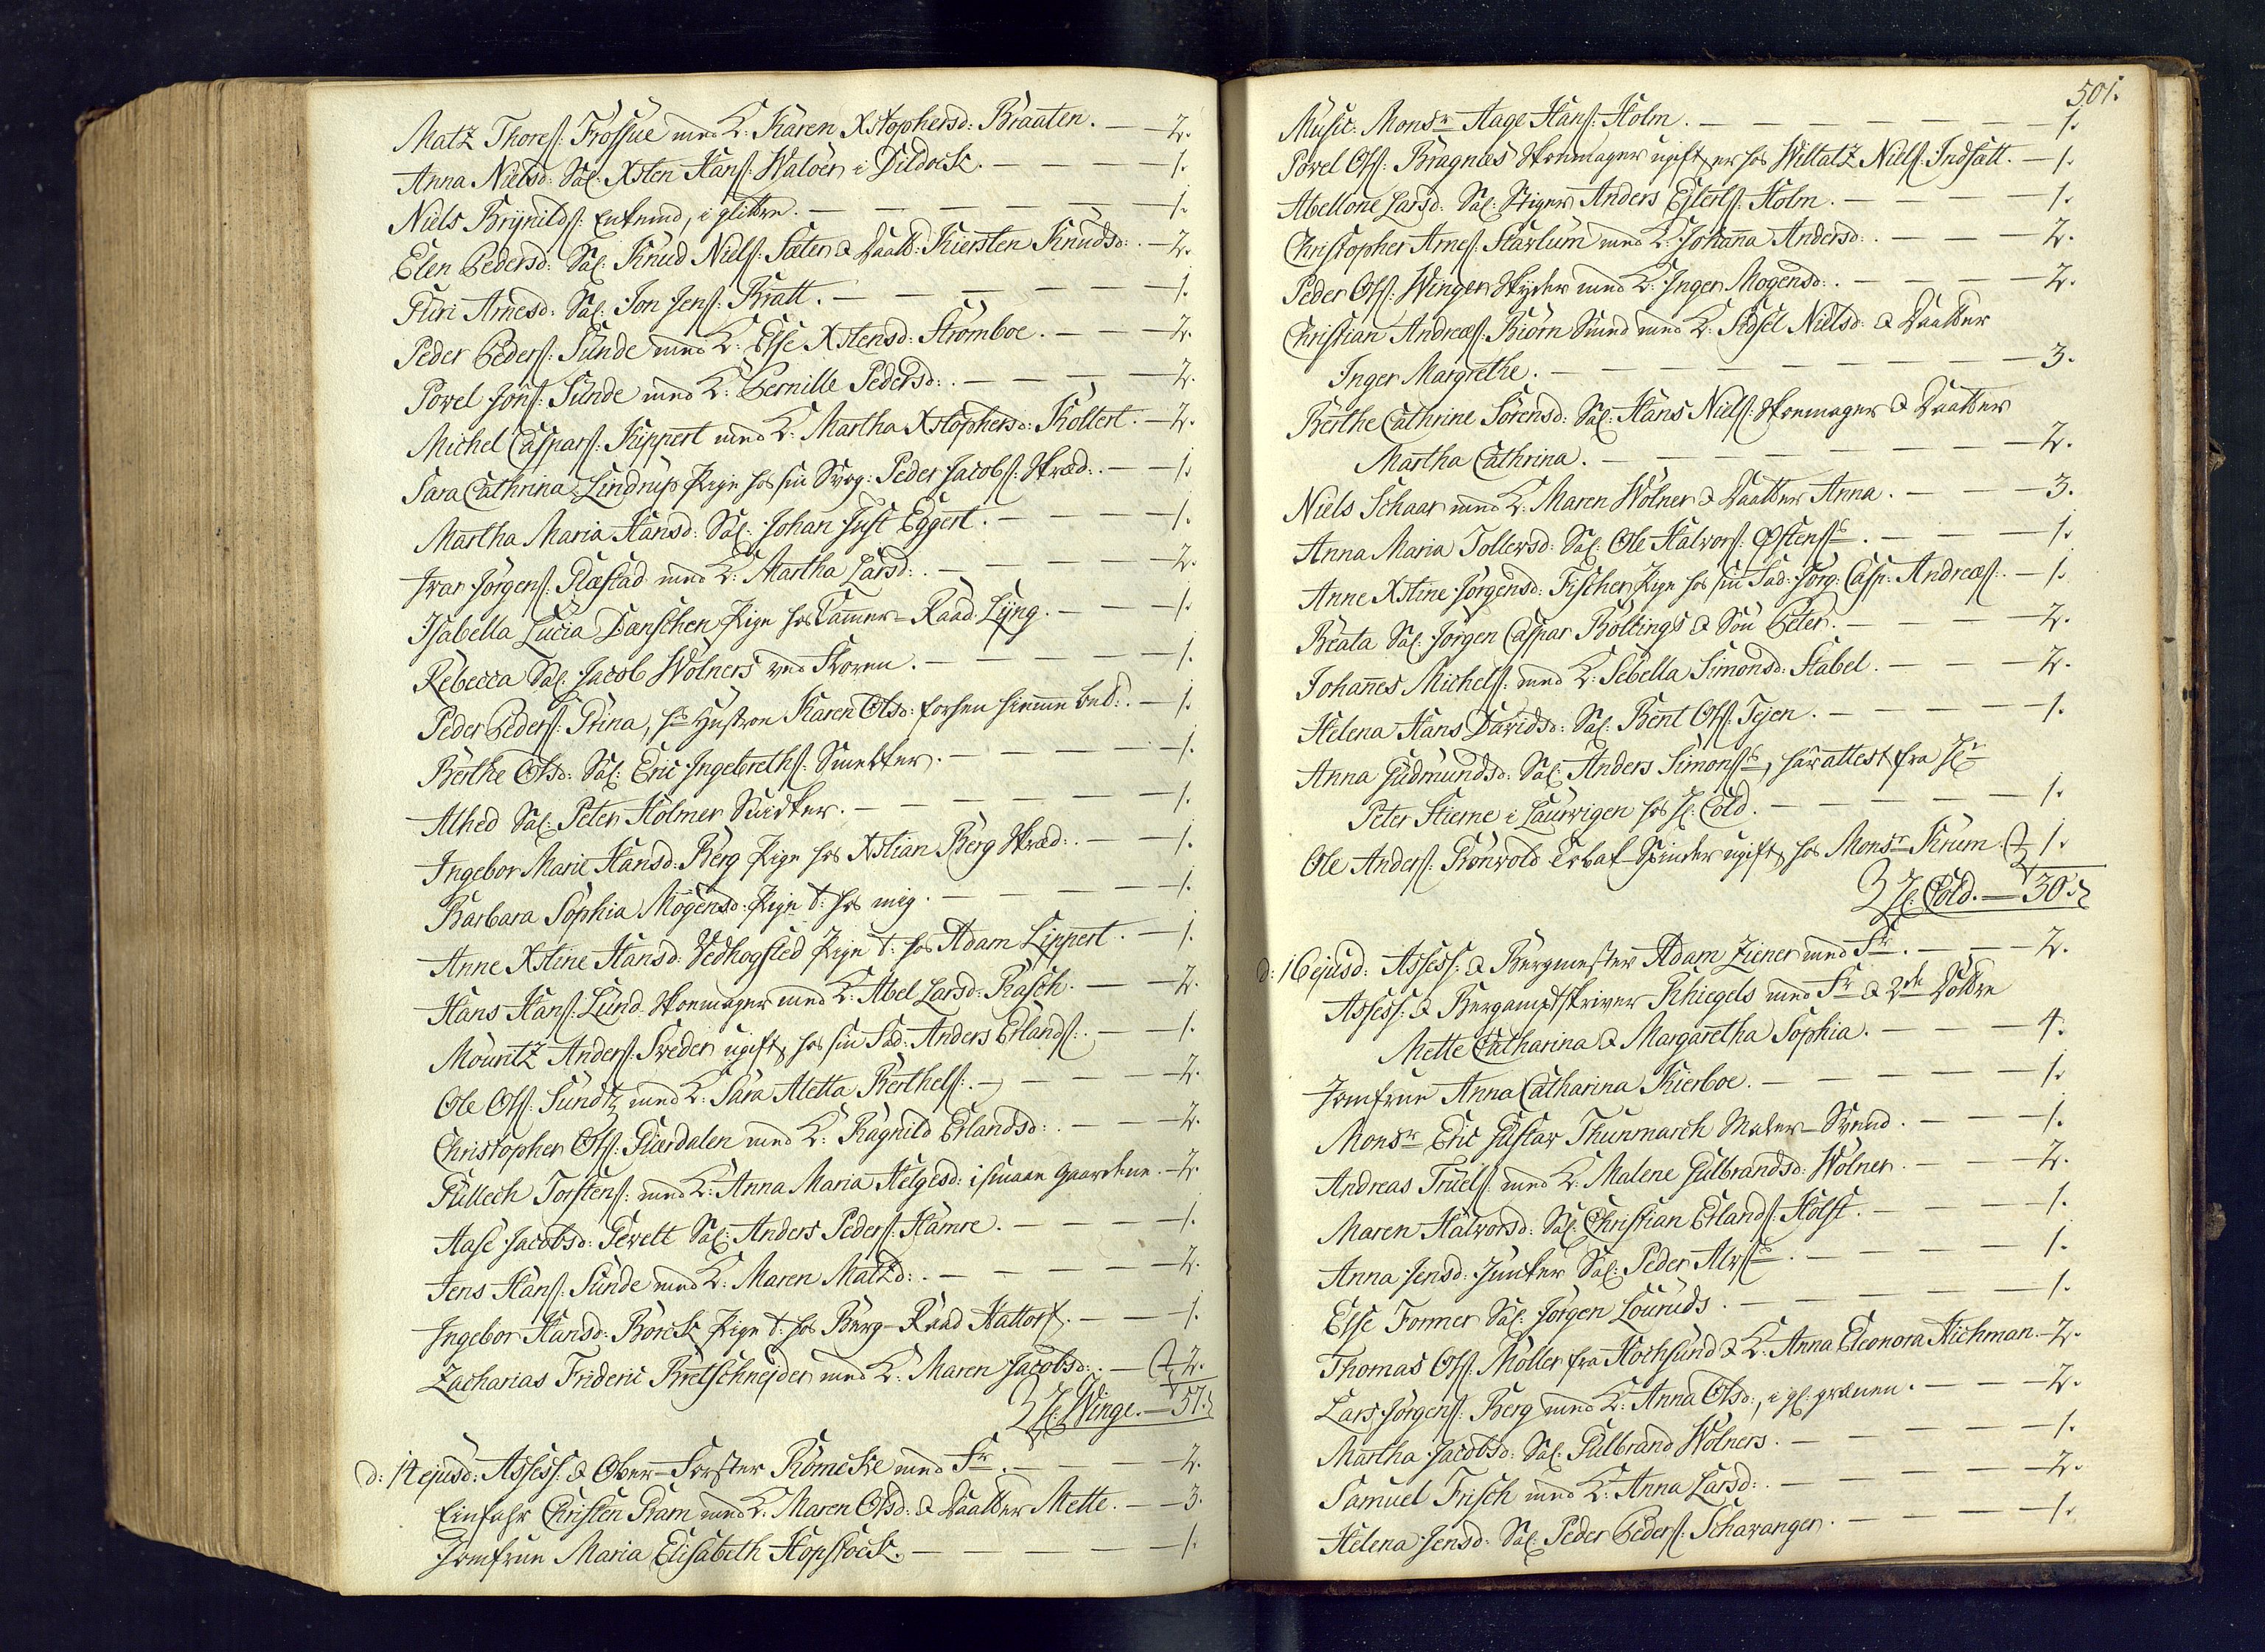 Matz Thoreß: Frossue med K: Karen Xstophersd: Braaten. — 2.
Anna Nielsd: Sal: Xsten Hanß: Waloer i Dildock. — 1.
Niels Brynildß: Enkemd, i glittre. — 1.
Elen Pedersd: Sal: Knud Nielß: Sæter & Daatt: Kiersten Knudsd: — 2.
Guri Arnesd: Sal: Jon Jenß: Bratt. — 1.
Peder Pederß: Sunde med K: Else Xstensd: Stromboe. — 2.
Povel Jonß: Sunde med K: Pernille Pedersd: — 2.
Michel Casparß: Kippert med K: Martha Xstophersd: Koltert. — 2.
Sara Cathrina Lindrup Pige hos sin Svog: Peder Jacobß: Skræd: — 1.
Martha Maria Hansd: Sal: Johan Just Eggert. — 1.
Ivar Jørgenß: Plæstad med K: Martha Larsd: — 2.
Isabella Lucia Danschen Pige hos Cammer-Raad Lyng. — 1.
Rebecca Sal: Jacob Wolners ved Skoven. — 1.
Peder Pederß: Prina, hs Hustroe Karen Olsd: forhen hiemme bet: — 1.
Berthe Olsd: Sal: Eric Ingebrethß: Smelter. — 1.
Alhed Sal: Peter Holmer Snidker. — 1.
Ingebor Marie Hansd: Berg Pige hos Xstian Berg Skræd: — 1.
Barbara Sophia Mogensd: Pige t: hos mig. — 1.
Anne Xstine Hansd: Vedhogsted Pige t: hos Adam Lippert. — 1.
Hans Hanß: Lund Skoemager med K: Abel Larsd: Rasch. — 2.
Mouritz Anderß: Sveder ugift, hos sin Fad: Anders Erlandß: — 1.
Ole Olß: Sundtz med K: Sara Aletta Berthelß: — 2.
Christopher Olß: Guerdalen med K: Ragnild Erlandsd: — 2.
Gullech Torstenß: med K: Anna Maria Helgesd: i smaae Gaardene. — 2.
Aase Jacobsd: Gevelt Sal: Anders Pederß: Hamre. — 1.
Jens Hanß: Sunde med K: Maren Matzd: — 2.
Ingebor Hansd: Borck Pige t: hos Berg-Raad Hattorf. — 1.
Zacharias Frideric Bretschneider med K: Maren Jacobsd: — 2.
H: Winge. — 57.
d: 14 ejusd: Assess: & Ober-Forster Römcke med Fr. — 2.
Einfahr Christen Gram med K: Maren Olsd: & Daatter Mette. — 3.
Jomfrue Maria Elisabeth Hopstock. — 1.
501.
Music: Monsr Aage Hanß: Holm. — 1.
Povel Olß: Bragnæs Skoemager ugift, er hos Willatz Nielß: Indsatt. — 1.
Abellone Larsd: Sal: Stiger Anders Eylertß: Holm. — 1.
Christopher Arneß: Skavlum med K: Johanna Andersd: — 2.
Peder Olß: Winger Skyder med K: Inger Mogensd: — 2.
Christian Andreæß: Biörn Smed med K: Sidsel Nielsd: & Daatter
Inger Margrethe. — 3.
Berthe Cathrine Sörensd: Sal: Hans Nielß: Skoemager & Daatter
Martha Cathrina. — 2.
Niels Schaar med K: Maren Wölner & Daatter Anna. — 3.
Anna Maria Tollevsd: Sal: Ole Halvorß: Østenß. — 1.
Anne Xstine Jörgensd: Fischer, Pige hos sin Fad: Jörg: Casp: Andreæß: — 1.
Beata Sal: Jörgen Caspar Böltings & Sön Peter. — 2.
Johanes Michelß: med K: Sebella Simonsd: Stabel. — 2.
Helena Hans Davidsd: Sal: Bent Olß: Tejen. — 1.
Anna Gudmundsd: Sal: Anders Simonß, har attest fra Hr
Peter Stierne i Laurvigen hos H: Cold. — 1.
Ole Anderß: Grönvold Tobak-Spinder ugift, hos Monsr Krum. 1.
H: Cold. — 30.
d: 16 ejusd: Assess: & Bergmester Adam Ziener med Fr. — 2.
Assess: & Bergamptskriver Khiegels med Fr & 2de Döttre
Mette Catharina & Margaretha Sophia. — 4.
Jomfrue Anna Catharina Kierboe. — 1.
Monsr Eric Gustav Thunmarch Maler-Svend. — 1.
Andreas Truelß: med K: Malene Gulbrandsd: Wölner. — 2.
Maren Halvorsd: Sal: Christian Erlandß: Holst. — 1.
Anna Jensd: Junker Sal: Peder Alvß. — 1.
Else Former Sal: Jörgen Louruds. — 1.
Thomas Olß: Möller fra Hochsund & K: Anna Eleonora Hichman. 2.
Lars Jörgenß: Berg med K: Anna Olsd:, i gl: grænen. — 2.
Martha Jacobsd: Sal: Gulbrand Wolners. — 1.
Samuel Frisch med K: Anna Larsd: — 2.
Helena Jensd: Sal: Peder Pederß: Schavanger. — 1.